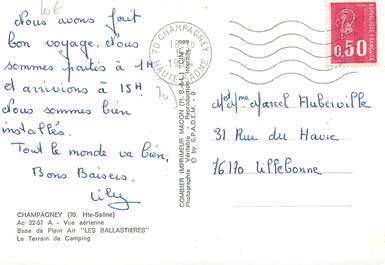 Nous avons fait
bon voyage. Nous
sommes partis à 1H
et arrivions à 15H
Nous sommes bien
installés.
Tout le monde va bien,
Bons Baisers.
Lily
CHAMPAGNEY (70. Hte-Saône)
Ac 22-57 A - Vue aérienne
Base de Plein Air "LES BALLASTIERES"
Le Terrain de Camping
COMBIER IMPRIMEUR MACON (71. S.-&-L.)
Photographie Véritable - Reproduction Interdite
© by S.P.A.D.E.M.
70 CHAMPAGNEY
HAUTE SAONE
REPUBLIQUE FRANCAISE
0,50
POSTES
Mr et Mme Marcel Auberville
31 Rue du Havre
76170 Lillebonne